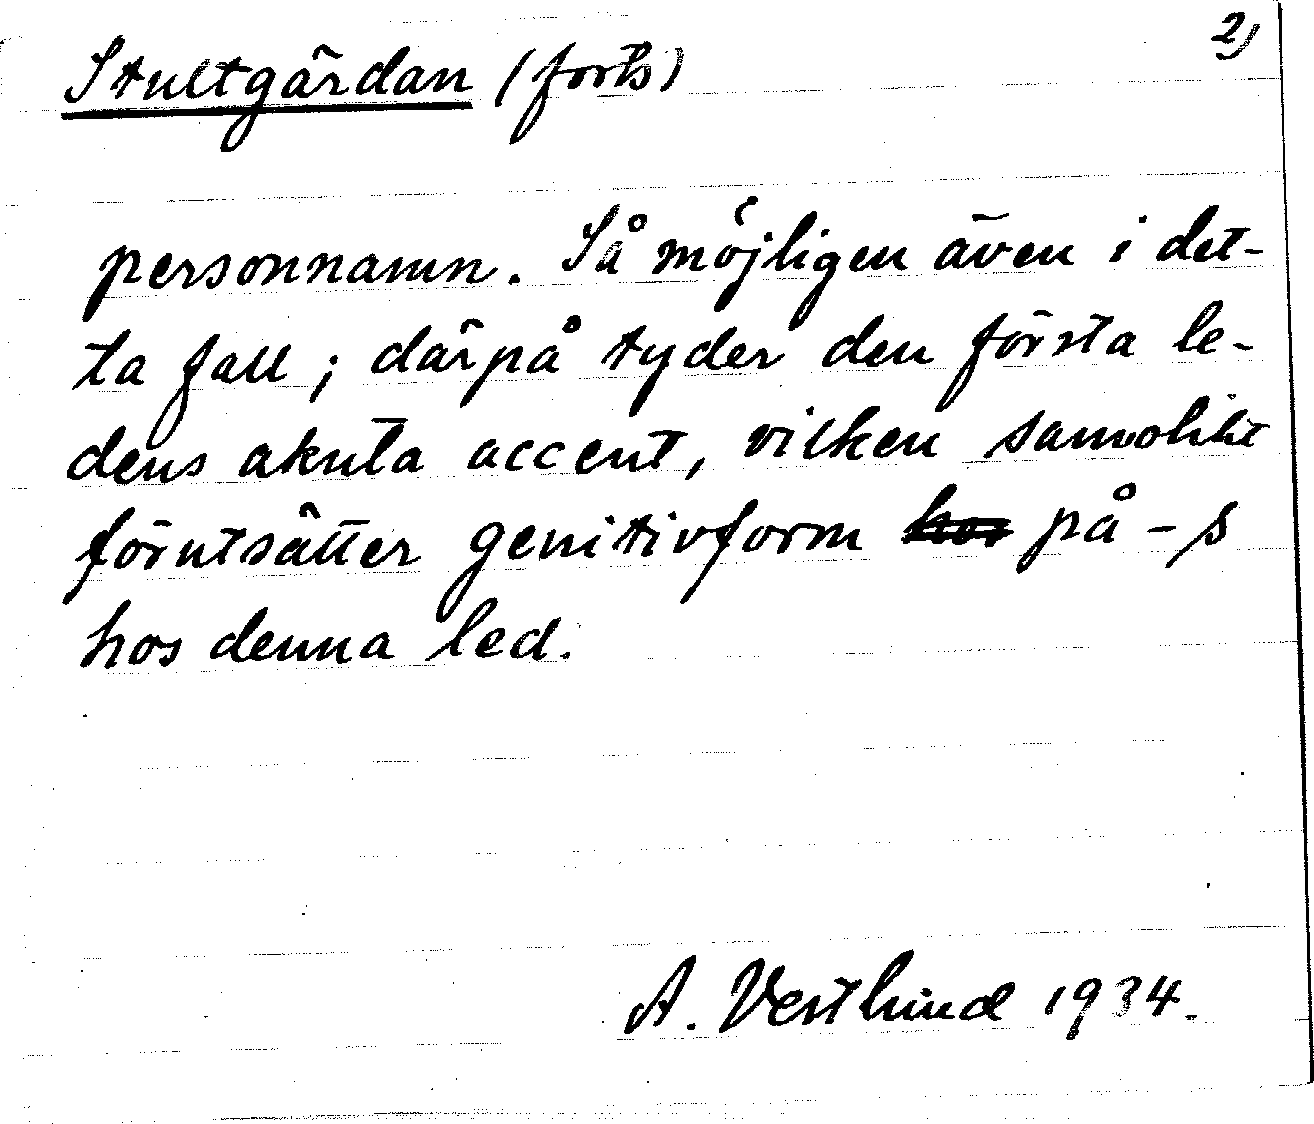 Stultgärdan (forts) 2)
personnamn. Så möjligen även i det-
ta fall; därpå tyder den första le-
dens akuta accent, vilken sannolikt
förutsätter genitivform hos på -s
hos denna led.
A. Vestlund 1934.